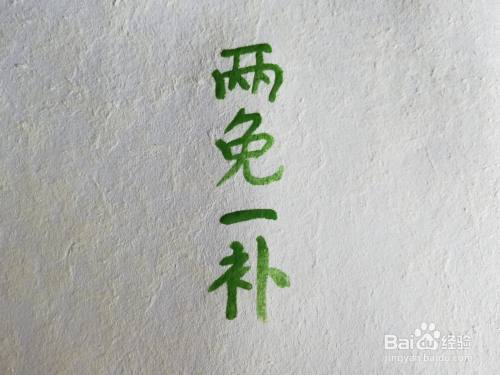 两免一补
Baidu经验
jingyan.baidu.com